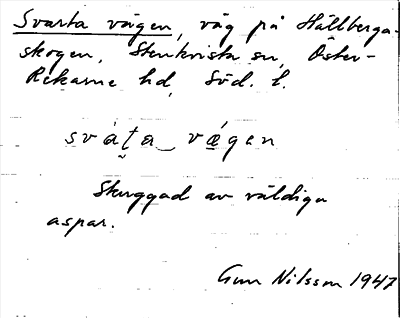 Svarta vägen, väg på Hällberga-
skogen, Stenkvista sn, Öster-
Rekarne hd, Söd. l.
svát̬a‿vǽgen
Skuggad av väldiga
aspar.
Gun Nilsson 1947